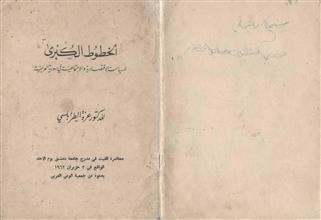 الخطوط الكبرى
للسياسة الاقتصادية والاجتماعية في سورية العربية
للدكتور عزة الطرابلسي
محاضرة القيت في مدرج جامعة دمشق يوم الاحد
الواقع في ٣ حزيران ١٩٦٢
بدعوة من جمعية الوعي العربي